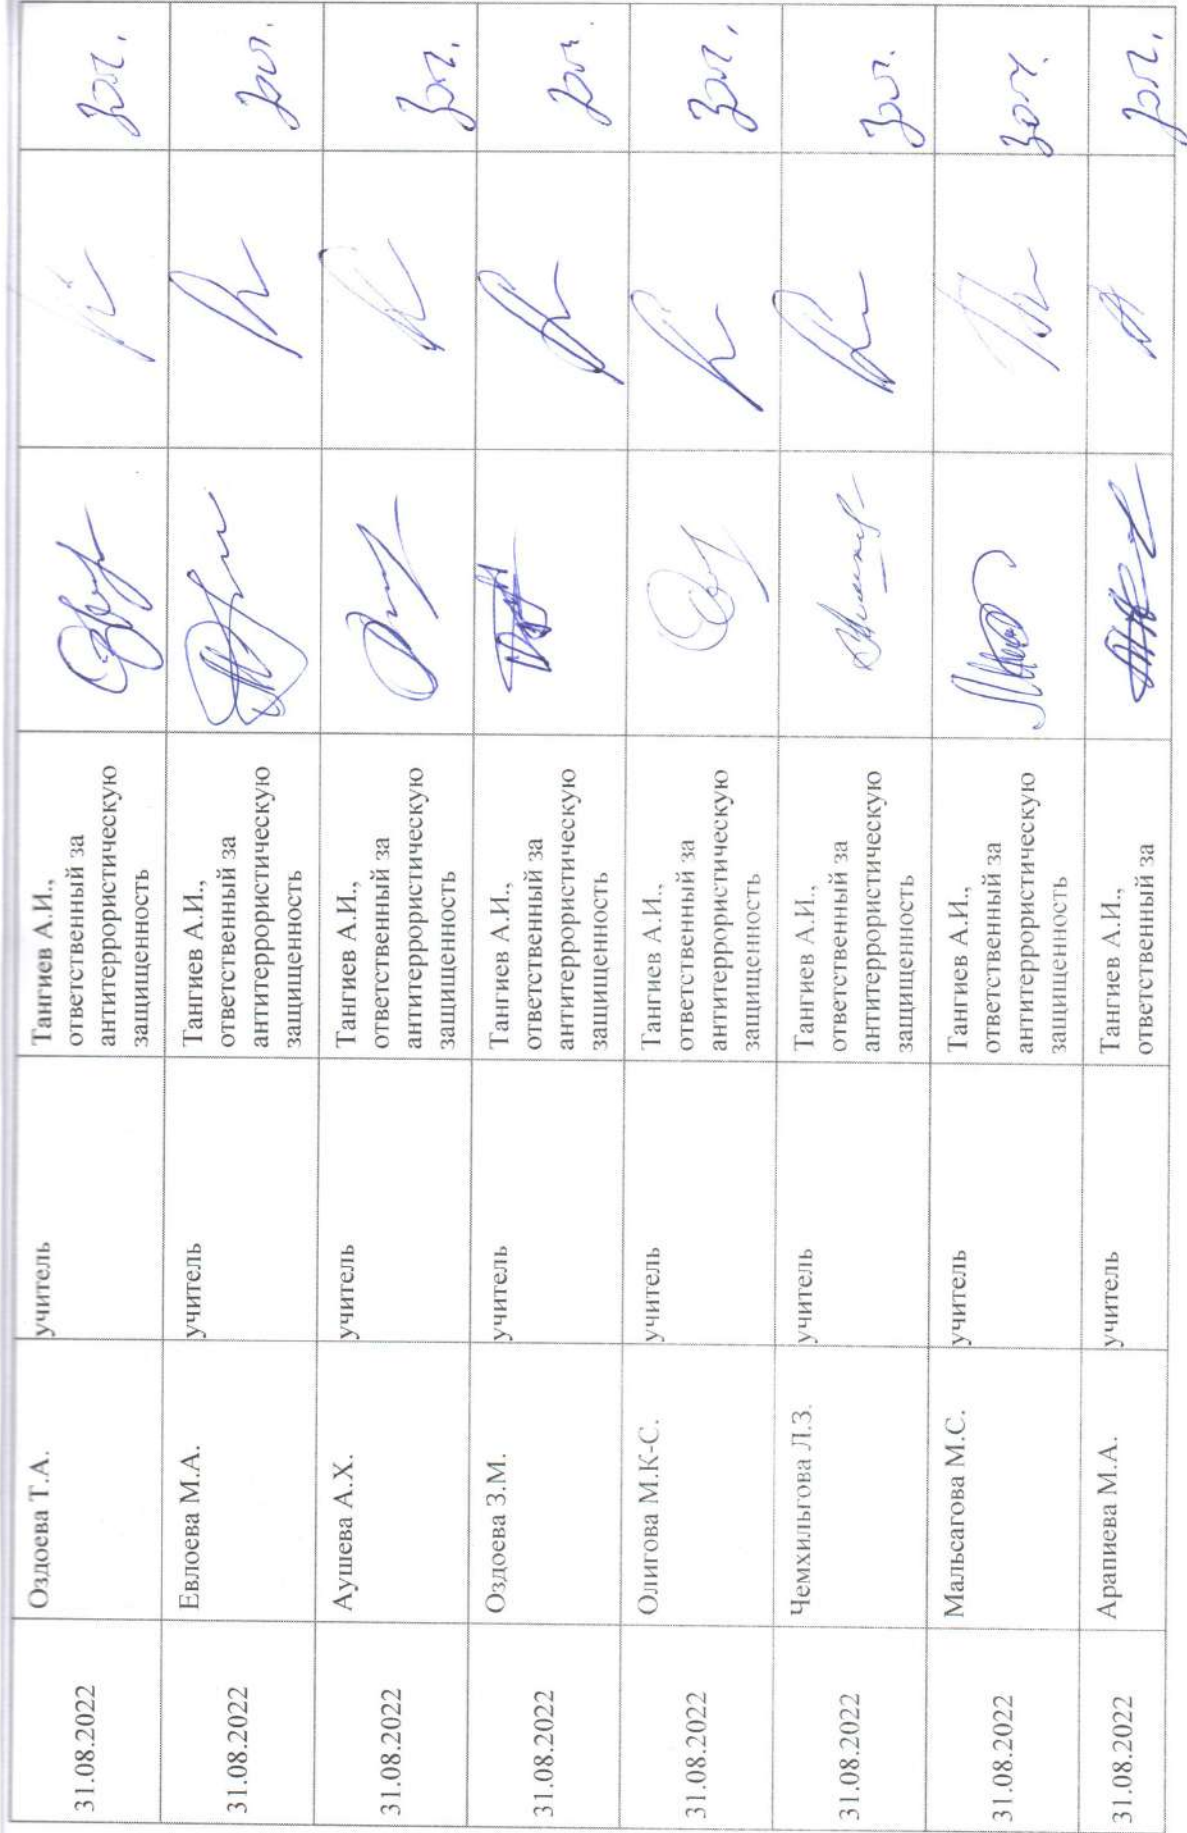 31.08.2022 Оздоева Т.А. учитель Тангиев А.И.,
ответственный за
антитеррористическую
защищенность
31.08.2022 Евлоева М.А. учитель Тангиев А.И.,
ответственный за
антитеррористическую
защищенность
31.08.2022 Аушева А.Х. учитель Тангиев А.И.,
ответственный за
антитеррористическую
защищенность
31.08.2022 Оздоева З.М. учитель Тангиев А.И.,
ответственный за
антитеррористическую
защищенность
31.08.2022 Олигова М.К-С. учитель Тангиев А.И.,
ответственный за
антитеррористическую
защищенность
31.08.2022 Чемхильгова Л.З. учитель Тангиев А.И.,
ответственный за
антитеррористическую
защищенность
31.08.2022 Мальсагова М.С. учитель Тангиев А.И.,
ответственный за
антитеррористическую
защищенность
31.08.2022 Арапиева М.А. учитель Тангиев А.И.,
ответственный за